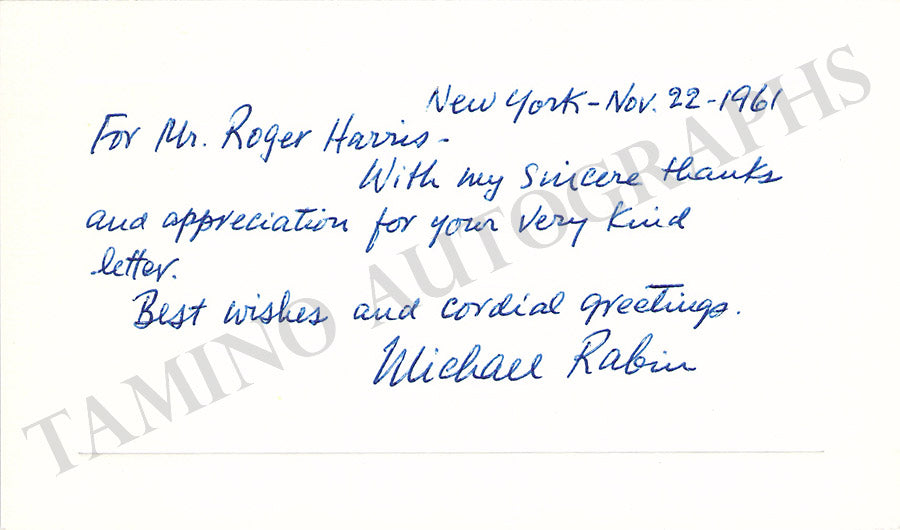 New York-Nov. 22-1961
For Mr. Roger Harris-
With my sincere thanks
and appreciation for your very kind
letter.
Best wishes and cordial greetings.
Michael Rabin
TAMINO AUTOGRAPHS